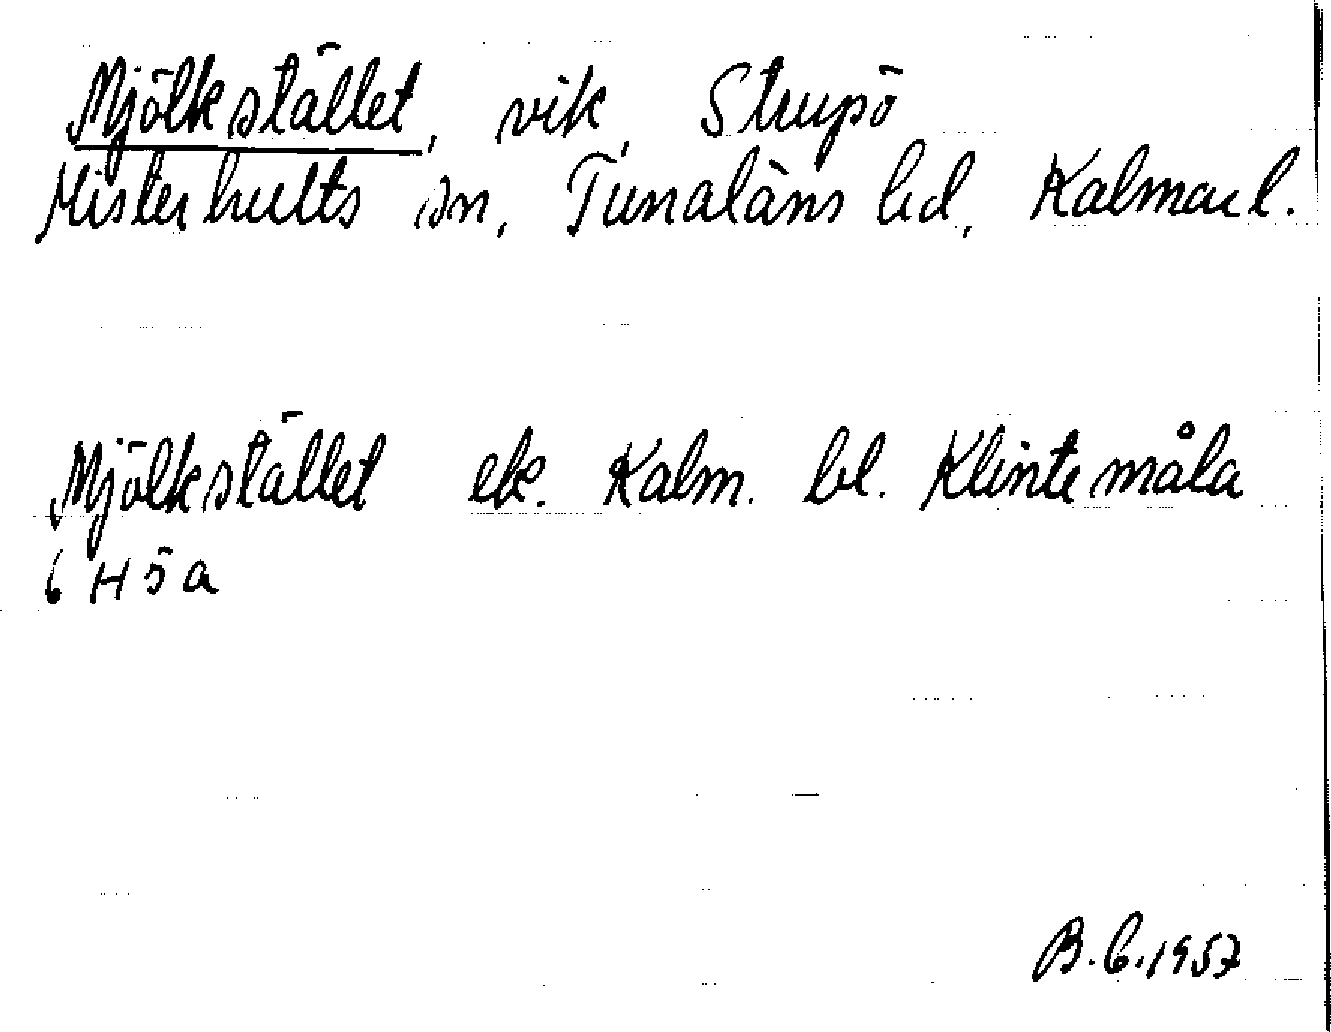 Mjölkstället, vik, Strupö
Misterhults sn, Tunaläns hd, Kalmar l.
Mjölkstället ek. Kalm. bl. Klintemåla
6 H 5 a
B.C. 1957